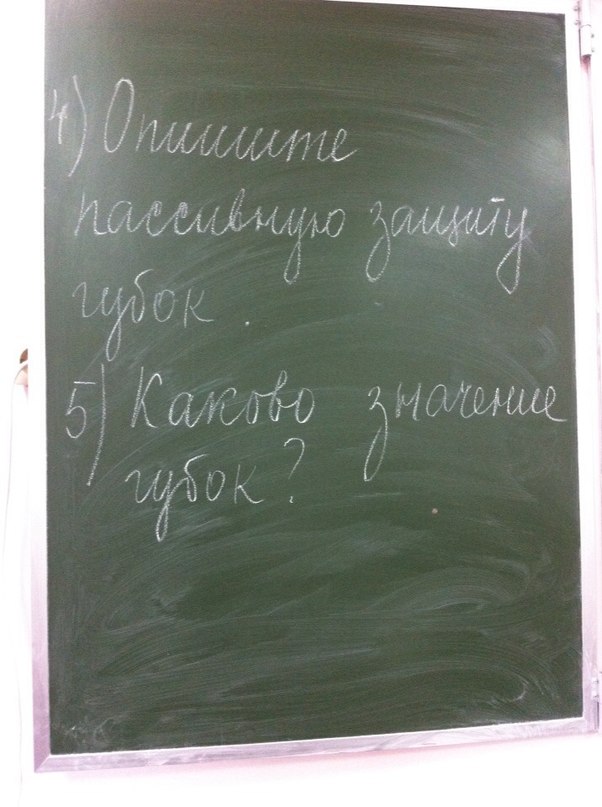 4) Опишите
пассивную защиту
губок.
5) Каково значение
губок?